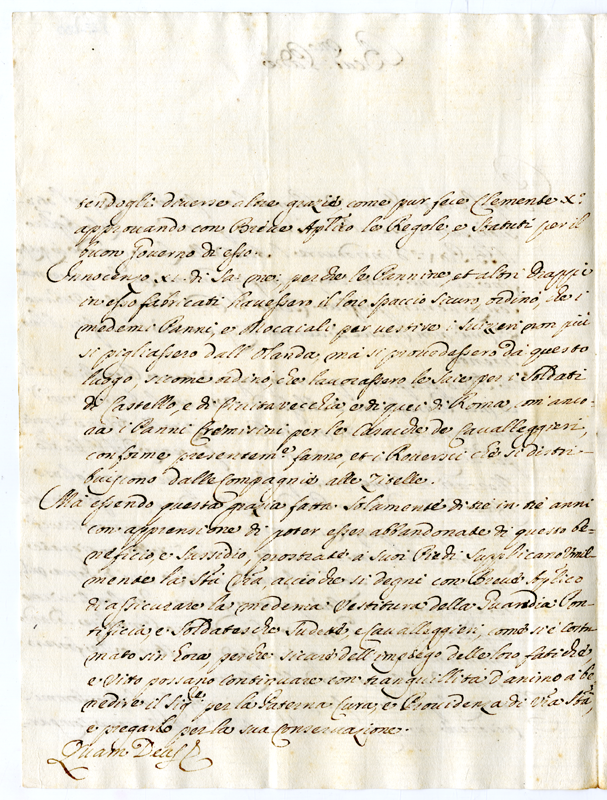 cendogli diverse altre grazie come pur fece Clemente X.º
approvando con Breve Aplico le Regole, e Statuti per il
buon Governo di esso.
Innocenzo XI. di Sa: me: perche le Pannine, et altri drappi
in esso fabricati havessero il loro spaccio sicuro ordinò, che i
medemi Panni, e Mocaiali per vestire i Suizzeri non più
si pigliassero dall'Olanda, mà si provedessero da questo
luogo, siccome ordinò che lavorassero le per i Soldati
di Castello, e di Civitavecchia, e di quei di Roma, anco-
ra i Panni Cremisini per le Casacche de Cavalleggieri,
conforme presentem.e fanno, et i Roversci che si distri-
buiscono dalle Compagnie alle Zitelle.
Mà essendo questa grazia fatta solamente di trè in trè anni
con apprensione di poter esser abbandonate di questo be-
neficio, e sussidio, prostrate a suoi Piedi Supplicano Umil-
mente la Stà Vra, acciò che si degni con Breve Aplico
di assicurare la medema Vestitura della Guardia Pon-
tificia, e Soldatesche Sudette, e Cavalleggieri, come si è costu-
mato sin hora, perche sicure dell'impiego delle loro fatiche,
e Vito possano continuare con tranquillità d'animo a be-
nedire il Sig.re per la Paterna Cura, e Providenza di Vra Stà,
e pregarlo per la sua Conservazione.
Quam Deus